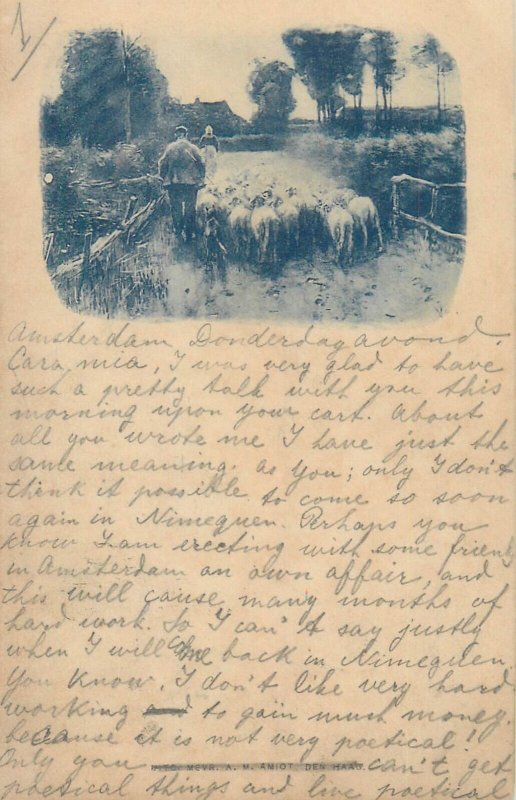 Amsterdam Donderdagavond.
Cara mia, I was very glad to have
such a pretty talk with you this
morning upon your cart. About
all you wrote me I have just the
same meaning. as You; only I don't
think it possible to come so soon
again in Nimeguen. Perhaps you
know I am erecting with some friends
in Amsterdam an own affair, and
this will cause many months of
hard work. So I can't say justly
when I will come back in Nimeguen.
You know, I don't like very hard
working to gain much money,
because it is not very poetical!
Only you can't get
MEVR. A. M. AMIOT, DEN HAAG
poetical things and live poetical